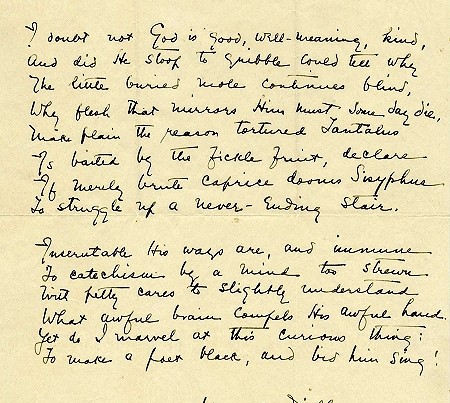 I doubt not God is good, well-meaning, kind,
And did He stoop to quibble could tell why
The little buried mole continues blind,
Why flesh that mirrors Him must some day die,
Make plain the reason tortured Tantalus
Is baited by the fickle fruit, declare
If merely brute caprice dooms Sisyphus
To struggle up a never-ending stair.
Inscrutable His ways are, and immune
To catechism by a mind too strewn
With petty cares to slightly understand
What awful brain compels His awful hand.
Yet do I marvel at this curious thing:
To make a poet black, and bid him sing!